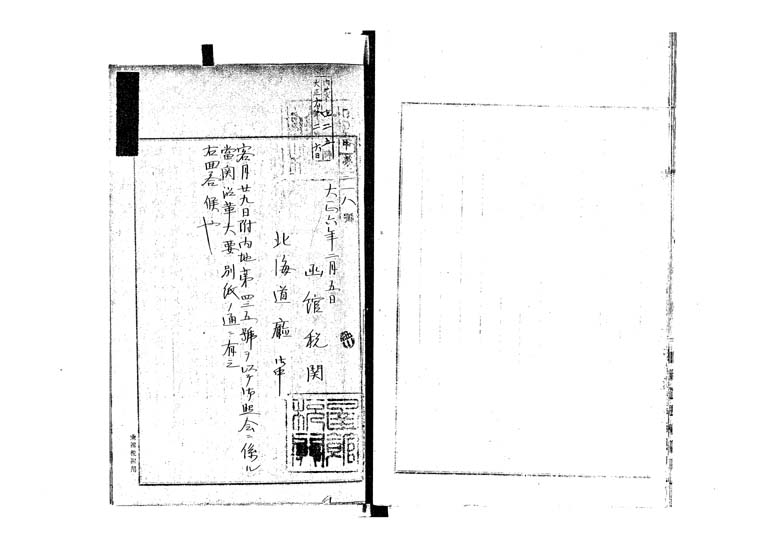 二一八號
大正六年二月五日
函館税関
北海道廳御中
客月廿九日附内地第四三五號ヲ以テ御照会ニ係ル
當関沿革大要別紙ノ通ニ有之
右回答候也
函館税関